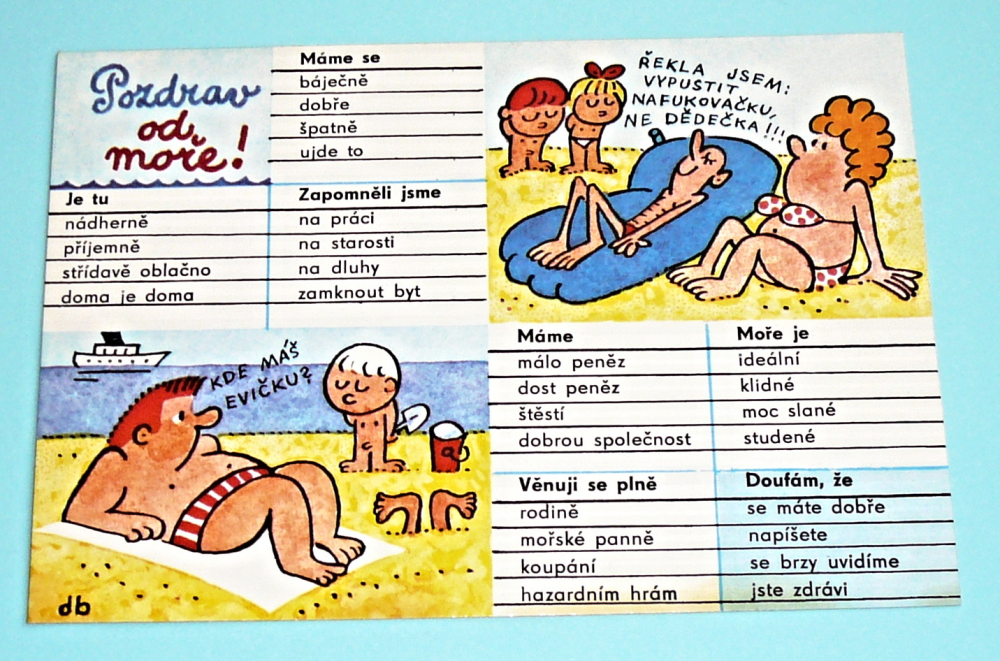 Pozdrav
od
moře!
Máme se
báječně
dobře
špatně
ujde to
Je tu
nádherně
příjemně
střídavě oblačno
doma je doma
Zapomněli jsme
na práci
na starosti
na dluhy
zamknout byt
ŘEKLA JSEM:
VYPUSTIT
NAFUKOVAČKU,
NE DĚDEČKA!!!
KDE MÁŠ
EVIČKU?
db
Máme
málo peněz
dost peněz
štěstí
dobrou společnost
Moře je
ideální
klidné
moc slané
studené
Věnuji se plně
rodině
mořské panně
koupání
hazardním hrám
Doufám, že
se máte dobře
napíšete
se brzy uvidíme
jste zdrávi